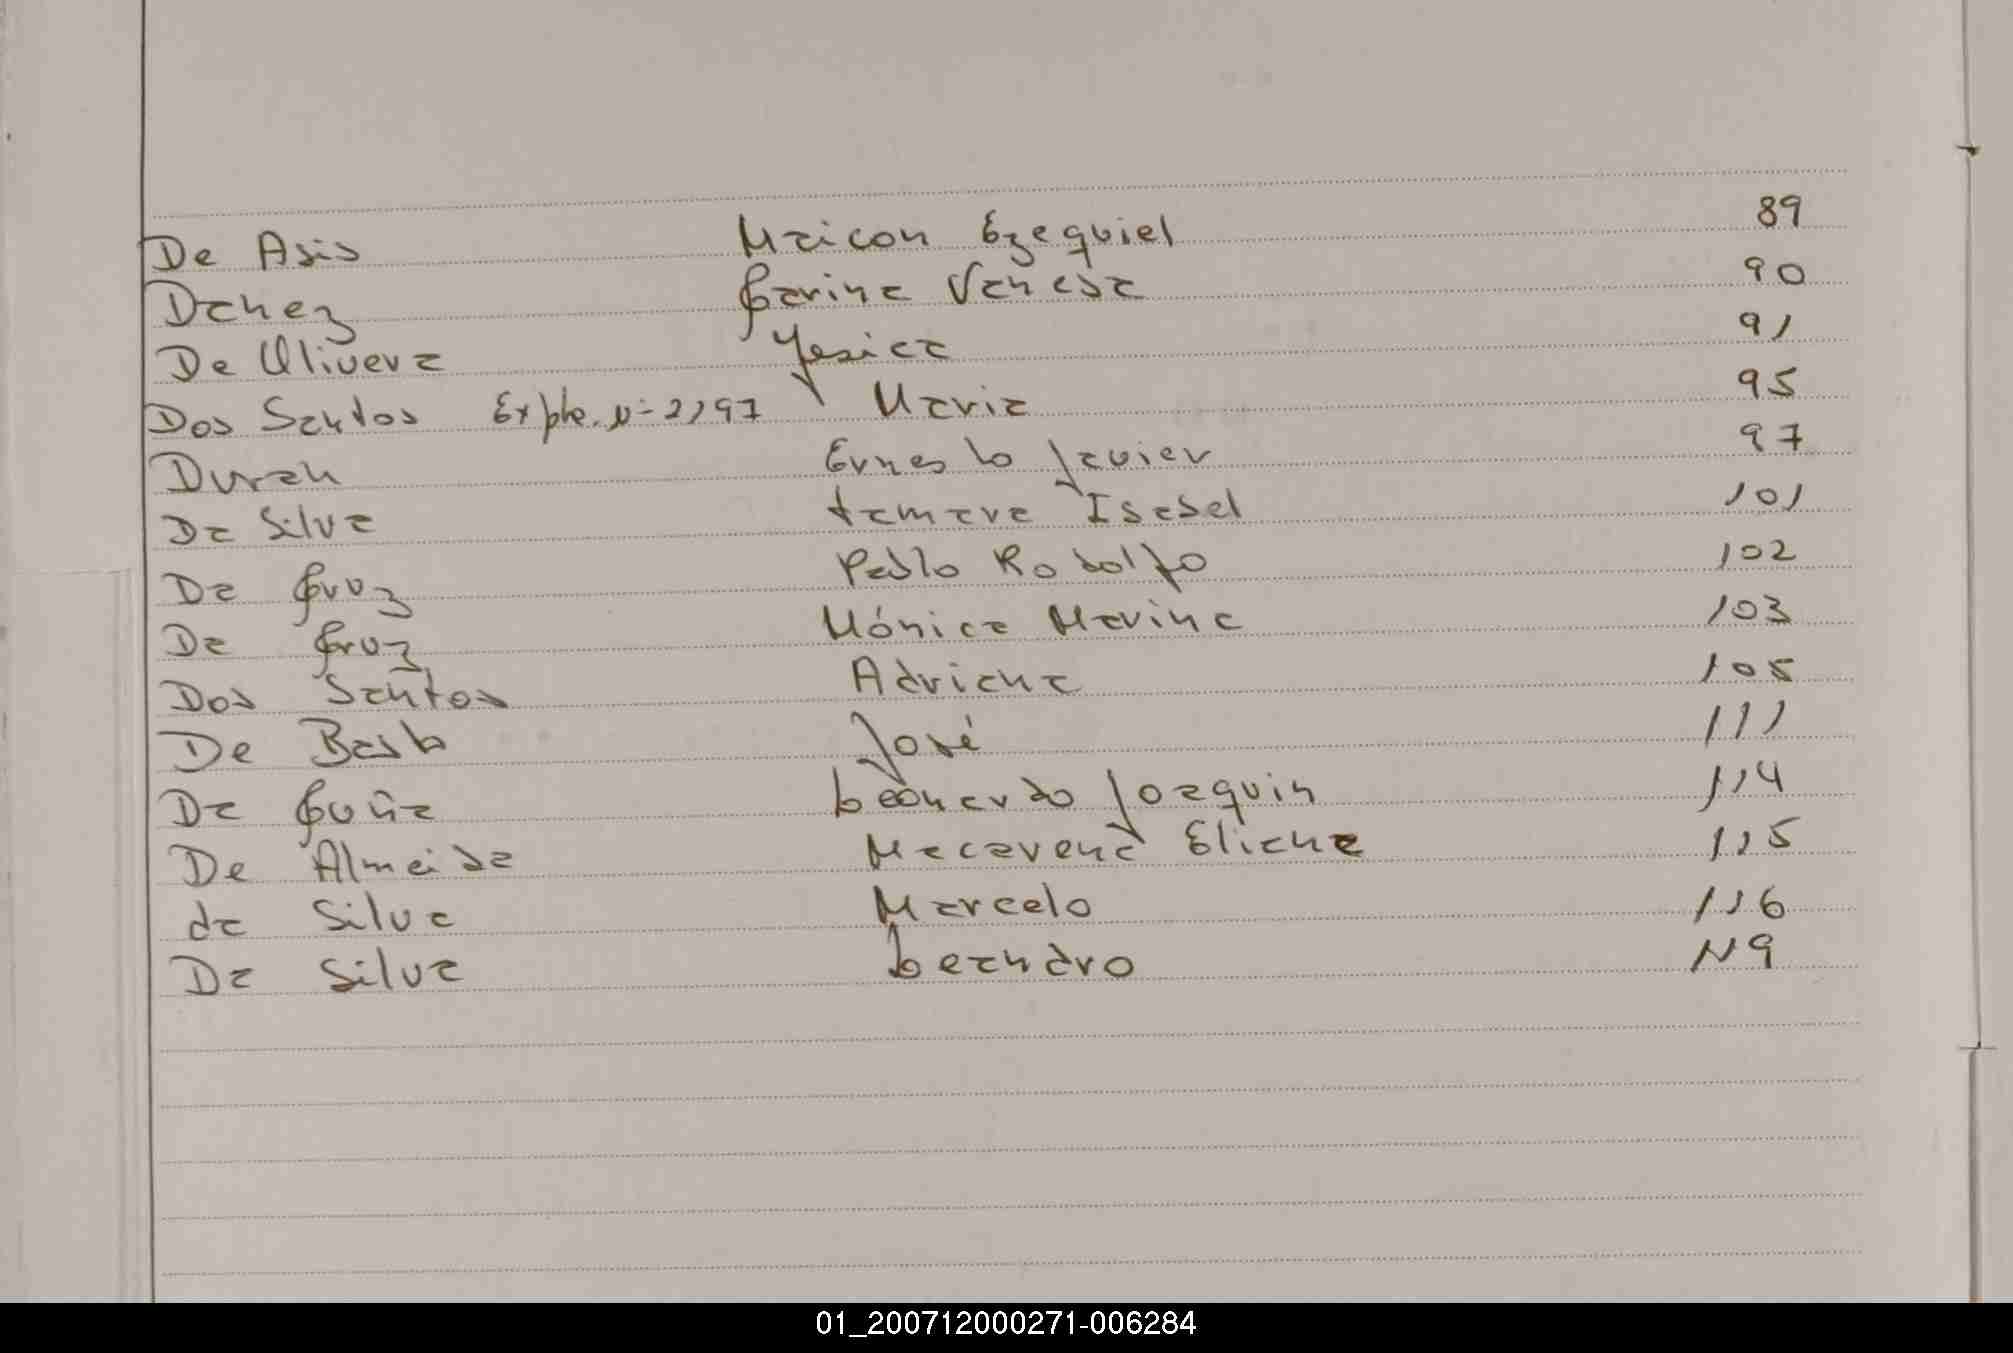 De Asis Maicon Ezequiel 89
Danez Carina Vanesa 90
De Olivera Yesica 91
Dos Santos Expte. Nº 2197 Maria 95
Duran Ernesto Javier 97
Da Silva tamara Isabel 101
Da Cruz Pablo Rodolfo 102
Da Cruz Mónica Marina 103
Dos Santos Adriana 105
De Basto José 111
Da Cuña Leonardo Joaquin 114
De Almeida Macarena Eliana 115
da Silva Marcelo 116
Da Silva Leandro 119
01_200712000271-006284